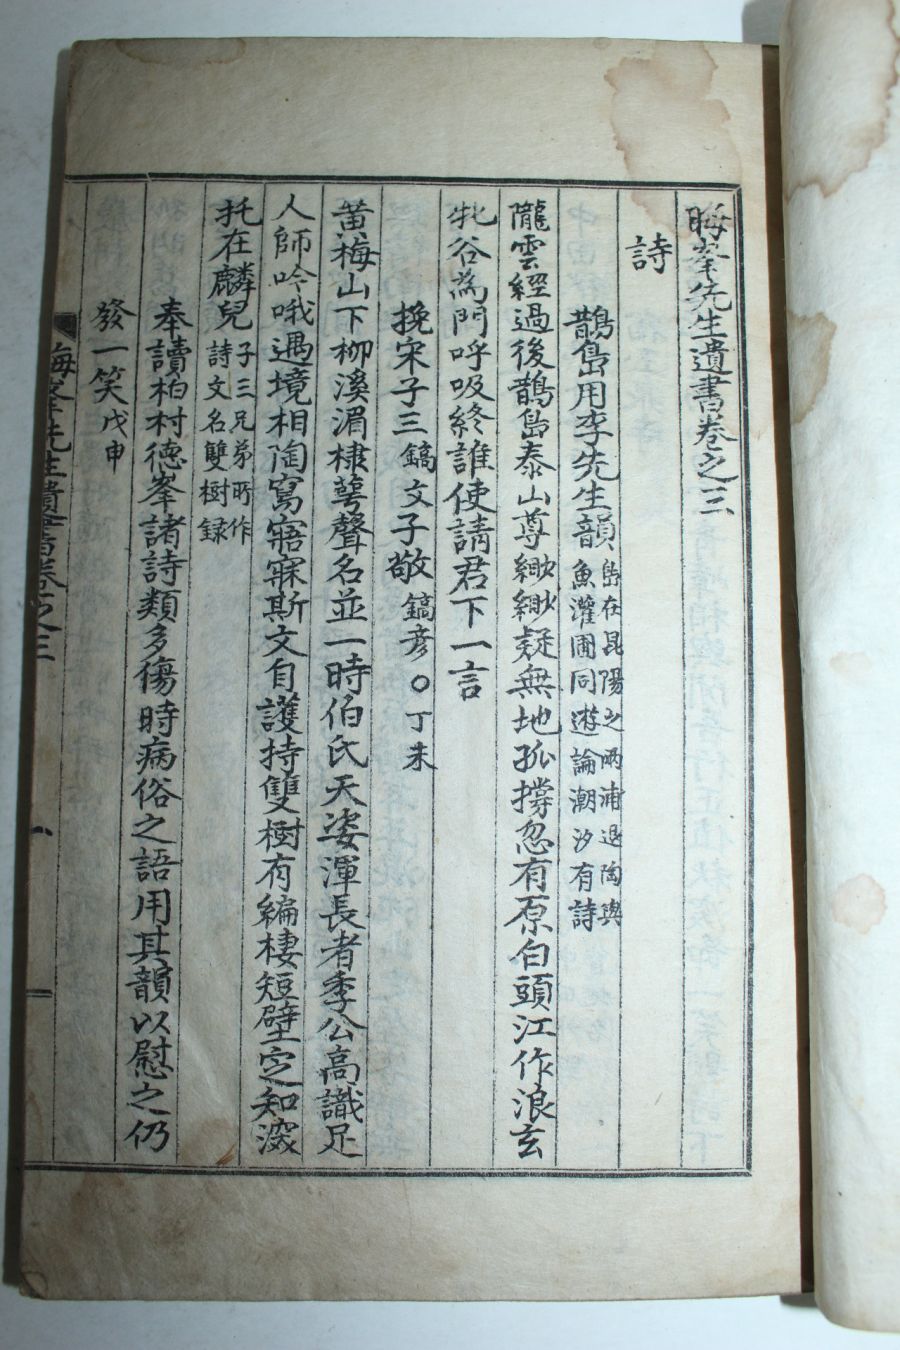 晦峯先生遺書卷之三
詩
鵲島用李先生韻 島在昆陽之兩浦退陶與
魚灌圃同遊論潮汐有詩
隴雲經過後鵲島泰山尊緲緲疑無地孤撐忽有原白頭江作浪玄
牝谷為門呼吸終誰使請君下一言
挽宋子三 鎬文 子敬 鎬彥 ○丁未
黃梅山下柳溪湄棣萼聲名並一時伯氏天姿渾長者季公高識足
人師吟哦遇境相陶寫寤寐斯文自護持雙樹有編棲短壁定知深
托在麟兒 子三兄弟所作
詩文名雙樹録
奉讀柏村德峯諸詩類多傷時病俗之語用其韻以慰之仍
發一笑 戊申
晦峯先生遺書卷之三
一